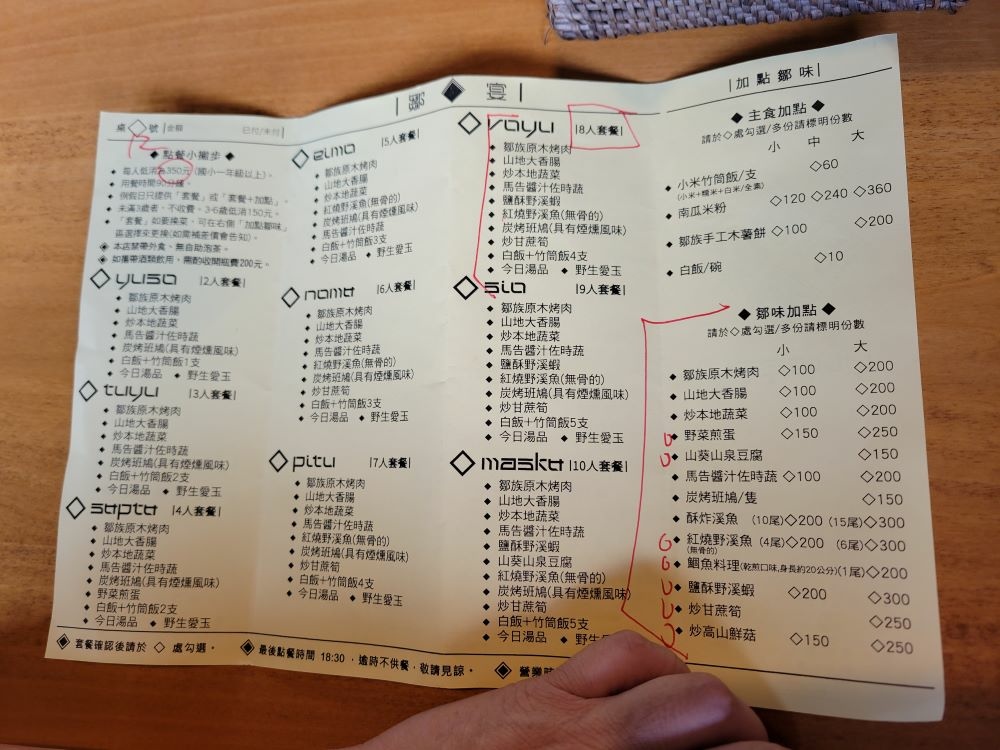 宴
桌◇號|金額 已付/未付|
◆ 點餐小撇步 ◆
◆ 每人低消為350元(國小一年級以上)。
◆ 用餐時間90分鐘。
◆ 例假日只提供「套餐」或「套餐+加點」。
◆ 未滿3歲者,不收費、3-6歲低消150元。
◆ 「套餐」如要換菜,可在右側「加點鄒味」
區選擇來更換(如需補差價會告知)。
◈ 本店禁帶外食、無自助泡茶。
◈ 如攜帶酒類飲用,需酌收開瓶費200元。
◇ yuso |2人套餐|
◆ 鄒族原木烤肉
◆ 山地大香腸
◆ 炒本地蔬菜
◆ 馬告醬汁佐時蔬
◆ 炭烤斑鳩(具有煙燻風味)
◆ 白飯+竹筒飯1支
◆ 今日湯品 ◆ 野生愛玉
◇ tuyu |3人套餐|
◆ 鄒族原木烤肉
◆ 山地大香腸
◆ 炒本地蔬菜
◆ 馬告醬汁佐時蔬
◆ 炭烤斑鳩(具有煙燻風味)
◆ 白飯+竹筒飯2支
◆ 今日湯品 ◆ 野生愛玉
◇ sopto |4人套餐|
◆ 鄒族原木烤肉
◆ 山地大香腸
◆ 炒本地蔬菜
◆ 馬告醬汁佐時蔬
◆ 炭烤斑鳩(具有煙燻風味)
◆ 野菜煎蛋
◆ 白飯+竹筒飯2支
◆ 今日湯品 ◆ 野生愛玉
◇ eimo |5人套餐|
◆ 鄒族原木烤肉
◆ 山地大香腸
◆ 炒本地蔬菜
◆ 紅燒野溪魚(無骨的)
◆ 炭烤斑鳩(具有煙燻風味)
◆ 馬告醬汁佐時蔬
◆ 白飯+竹筒飯3支
◆ 今日湯品 ◆ 野生愛玉
◇ nomo |6人套餐|
◆ 鄒族原木烤肉
◆ 山地大香腸
◆ 炒本地蔬菜
◆ 馬告醬汁佐時蔬
◆ 紅燒野溪魚(無骨的)
◆ 炭烤斑鳩(具有煙燻風味)
◆ 炒甘蔗筍
◆ 白飯+竹筒飯3支
◆ 今日湯品 ◆ 野生愛玉
◇ pitu |7人套餐|
◆ 鄒族原木烤肉
◆ 山地大香腸
◆ 炒本地蔬菜
◆ 馬告醬汁佐時蔬
◆ 紅燒野溪魚(無骨的)
◆ 炭烤斑鳩(具有煙燻風味)
◆ 炒甘蔗筍
◆ 白飯+竹筒飯4支
◆ 今日湯品 ◆ 野生愛玉
◇ voyu |8人套餐|
◆ 鄒族原木烤肉
◆ 山地大香腸
◆ 炒本地蔬菜
◆ 馬告醬汁佐時蔬
◆ 鹽酥野溪蝦
◆ 紅燒野溪魚(無骨的)
◆ 炭烤斑鳩(具有煙燻風味)
◆ 炒甘蔗筍
◆ 白飯+竹筒飯4支
◆ 今日湯品 ◆ 野生愛玉
◇ sio |9人套餐|
◆ 鄒族原木烤肉
◆ 山地大香腸
◆ 炒本地蔬菜
◆ 馬告醬汁佐時蔬
◆ 鹽酥野溪蝦
◆ 紅燒野溪魚(無骨的)
◆ 炭烤斑鳩(具有煙燻風味)
◆ 炒甘蔗筍
◆ 白飯+竹筒飯5支
◆ 今日湯品 ◆ 野生愛玉
◇ masko |10人套餐|
◆ 鄒族原木烤肉
◆ 山地大香腸
◆ 炒本地蔬菜
◆ 馬告醬汁佐時蔬
◆ 鹽酥野溪蝦
◆ 山葵山泉豆腐
◆ 紅燒野溪魚(無骨的)
◆ 炭烤斑鳩(具有煙燻風味)
◆ 炒甘蔗筍
◆ 白飯+竹筒飯5支
◆ 今日湯品 ◆ 野生
|加點鄒味|
◆ 主食加點 ◆
請於◇處勾選/多份請標明份數
小 中 大
◆ 小米竹筒飯/支 ◇60
(小米+糯米+白米/全素)
◆ 南瓜米粉 ◇120 ◇240 ◇360
◆ 鄒族手工木薯餅 ◇100 ◇200
◆ 白飯/碗 ◇10
◆ 鄒味加點 ◆
請於◇處勾選/多份請標明份數
小 大
◆ 鄒族原木烤肉 ◇100 ◇200
◆ 山地大香腸 ◇100 ◇200
◆ 炒本地蔬菜 ◇100 ◇200
◆ 野菜煎蛋 ◇150 ◇250
◆ 山葵山泉豆腐 ◇150
◆ 馬告醬汁佐時蔬 ◇100 ◇200
◆ 炭烤斑鳩/隻 ◇150
◆ 酥炸溪魚 (10尾)◇200 (15尾)◇300
◆ 紅燒野溪魚 (4尾)◇200 (6尾)◇300
(無骨的)
◆ 鯝魚料理(乾煎口味,身長約20公分)(1尾)◇200
◆ 鹽酥野溪蝦 ◇200 ◇300
◆ 炒甘蔗筍 ◇250
◆ 炒高山鮮菇 ◇150 ◇250
◈ 套餐確認後請於 ◇ 處勾選。 ◈ 最後點餐時間 18:30,逾時不供餐,敬請見諒。 ◈ 營業時